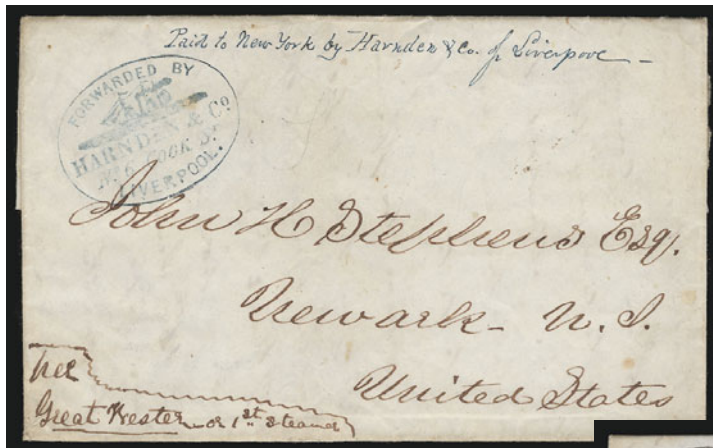 Paid to New York by Harnden & Co. of Liverpool
FORWARDED BY
HARNDEN & Co
No 6 COOK St
LIVERPOOL.
John H Stephens Esq.
Newark - N. J.
United States
per
Great Wester - or 1st steamer